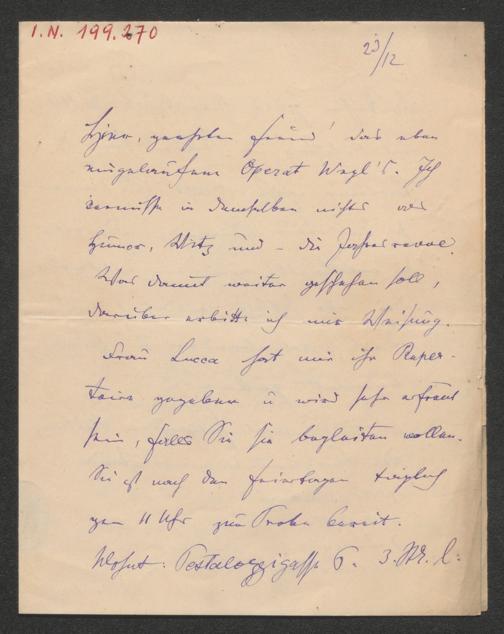 I.N. 199.270
23/12
Hier, geehrter Freund! das eben
eingelaufene Operat Weyl's. Ich
vermisse in demselben nichts als
Humor, Witz und – die Jahresrevue.
Was damit weiter geschehen soll,
darüber erbitte ich mir Weisung.
Frau Lucca hat mir ihr Reper-
toire gegeben u wird sehr erfreut
sein, falls Sie sie begleiten wollen.
Sie ist nach den Feiertagen täglich
gen 11 Uhr zur Probe bereit.
Wohnt: Pestalozzigasse 6. 3.